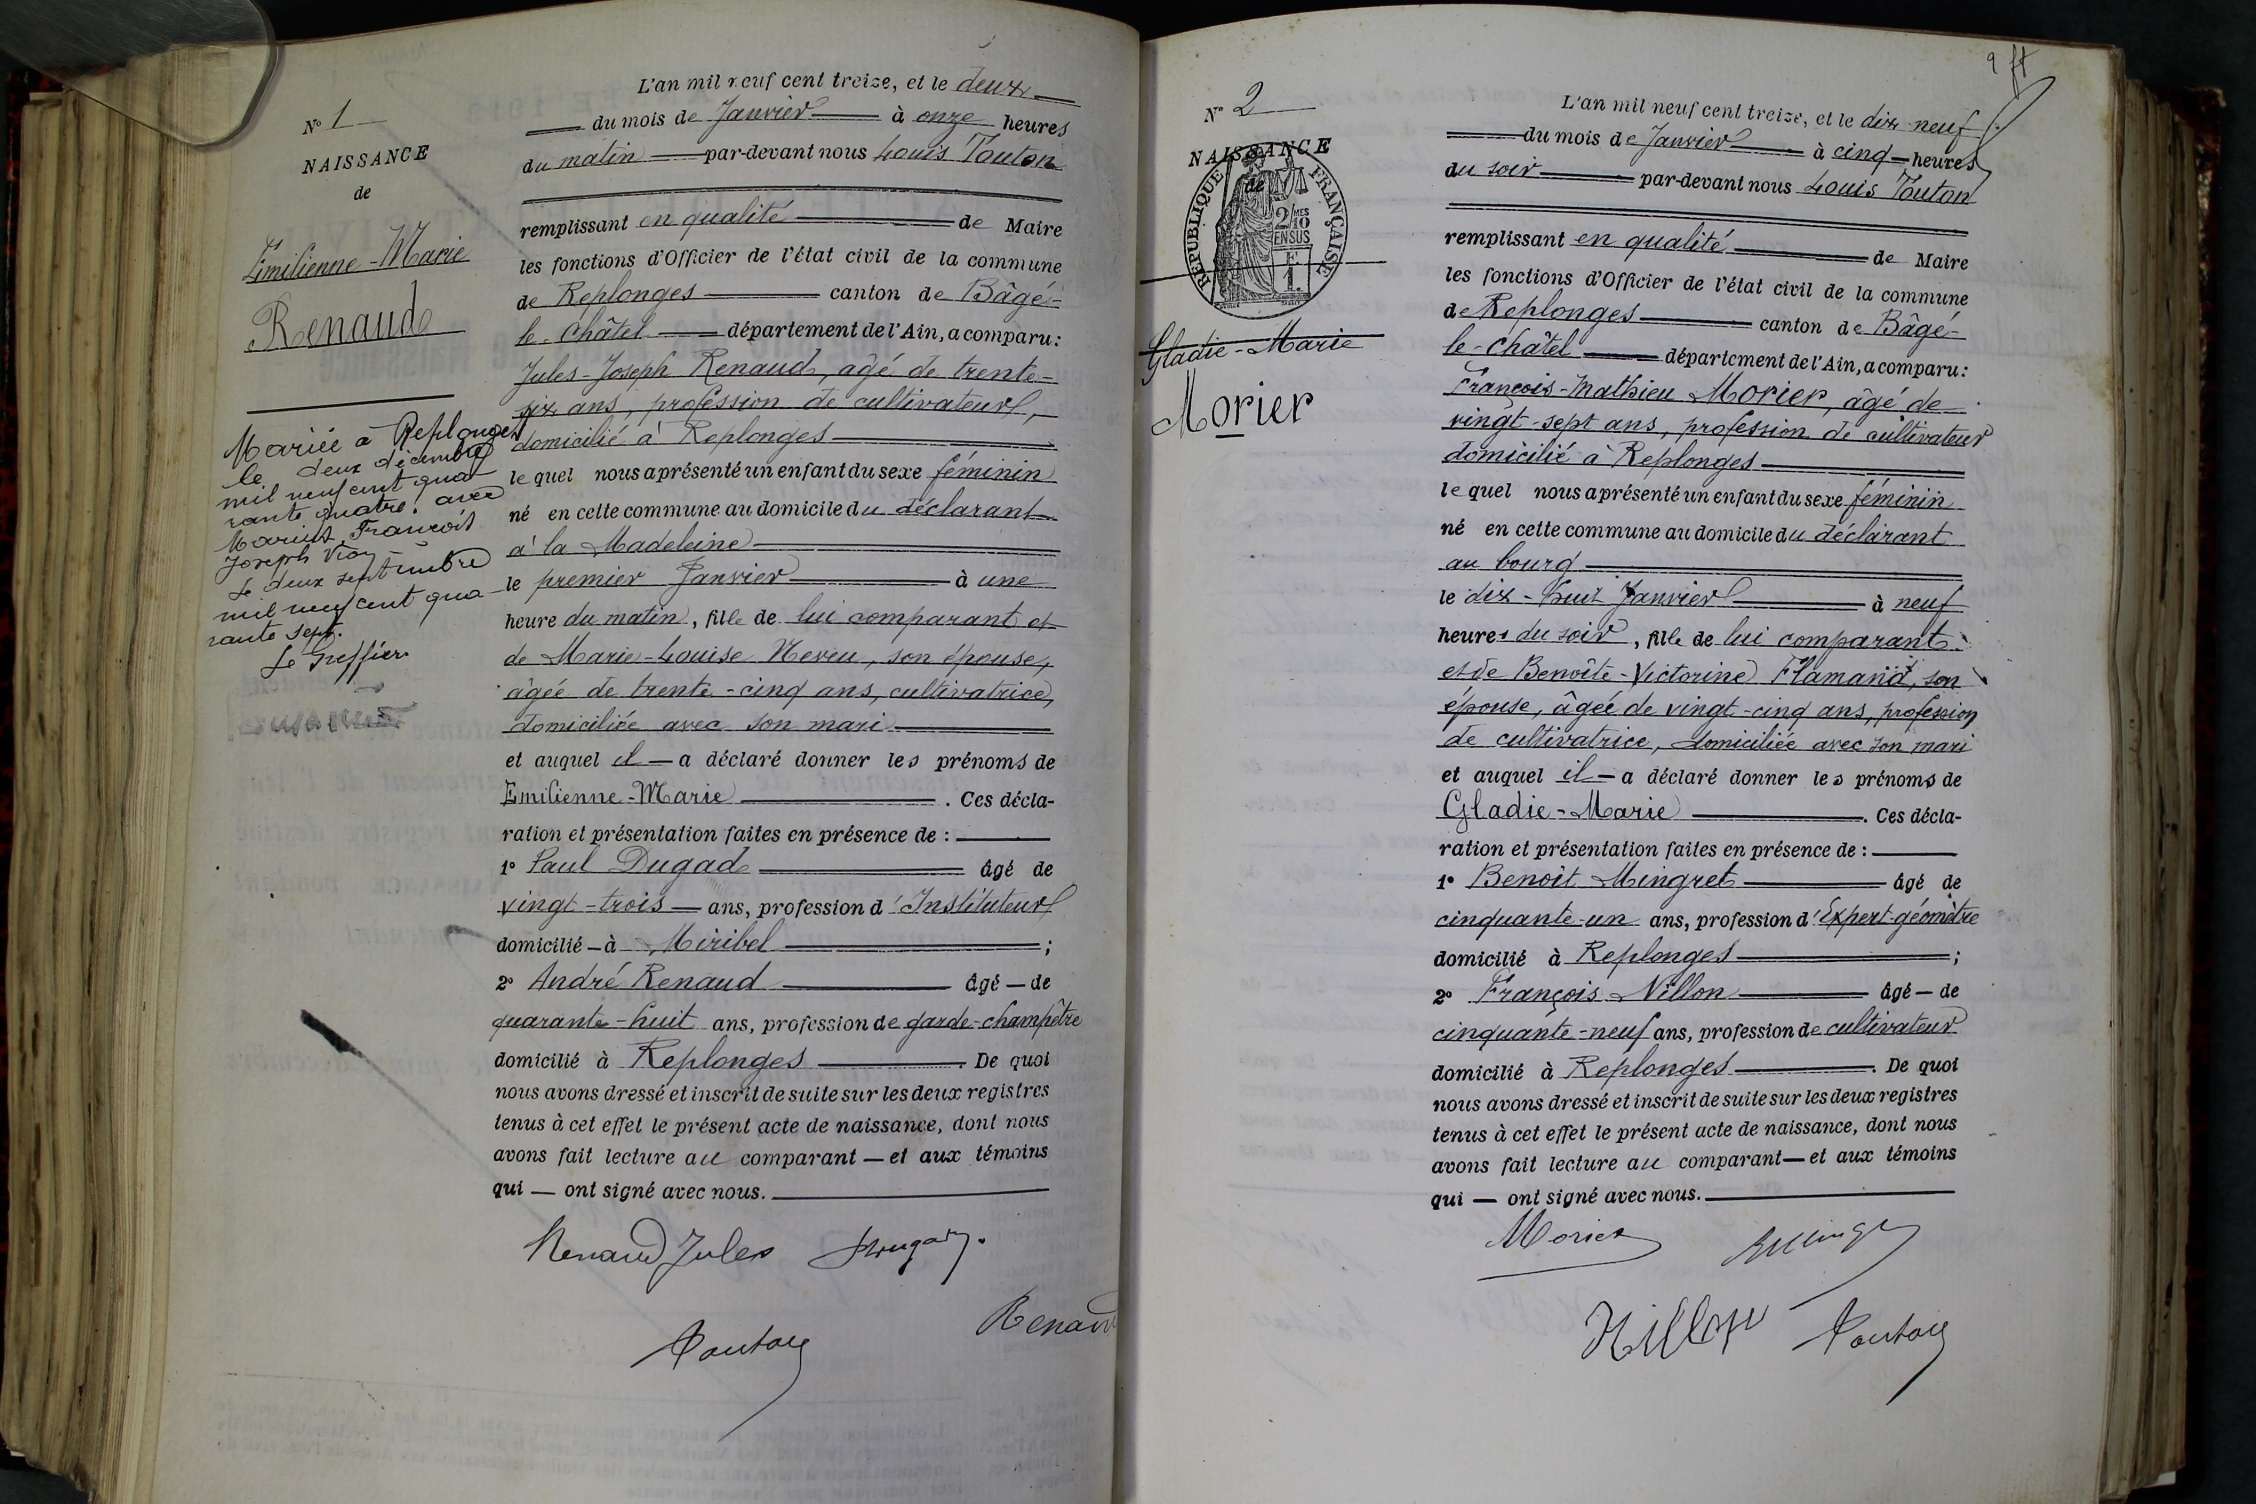 N° 1
NAISSANCE
de
Emilienne-Marie
Renaud
Mariée à Replonges
le deux décembre
mil neuf cent qua
rante quatre avec
Marius François
Joseph
Le deux septembre
mil neuf cent qua-
rante sept.
Le Greffier
L'an mil neuf cent treize, et le deux
du mois de Janvier à onze heures
du matin par-devant nous Louis Touton
remplissant en qualité de Maire
les fonctions d'Officier de l'état civil de la commune
de Replonges canton de Bâgé-
le-Châtel département de l'Ain, a comparu:
Jules-Joseph Renaud, âgé de trente-
six ans, profession de cultivateur,
domicilié à Replonges
le quel nous a présenté un enfant du sexe féminin
né en cette commune au domicile du déclarant
à la Madeleine
le premier Janvier à une
heure du matin, fille de lui comparant et
de Marie-Louise Neveu, son épouse,
âgée de trente-cinq ans, cultivatrice,
domiciliée avec son mari
et auquel il — a déclaré donner les prénoms de
Emilienne-Marie . Ces décla-
ration et présentation faites en présence de :
1° Paul Dugad âgé de
vingt-trois — ans, profession d'Instituteur
domicilié — à Miribel ;
2° André Renaud âgé — de
quarante-huit ans, profession de garde-champêtre
domicilié à Replonges . De quoi
nous avons dressé et inscrit de suite sur les deux registres
tenus à cet effet le présent acte de naissance, dont nous
avons fait lecture au comparant — et aux témoins
qui — ont signé avec nous.
Renaud Jules Dugad
Renaud
Touton
9
N° 2
NAISSANCE
de
RÉPUBLIQUE FRANÇAISE
2/10MES
EN SUS
F.
1.
Gladie-Marie
Morier
L'an mil neuf cent treize, et le dix neuf
du mois de Janvier à cinq — heures
du soir par-devant nous Louis Touton
remplissant en qualité de Maire
les fonctions d'Officier de l'état civil de la commune
de Replonges canton de Bâgé-
le-châtel département de l'Ain, a comparu:
François-Mathieu Morier, âgé de
vingt-sept ans, profession de cultivateur
domicilié à Replonges
le quel nous a présenté un enfant du sexe féminin
né en cette commune au domicile du déclarant
au bourg
le dix-huit Janvier à neuf
heures du soir, fille de lui comparant
et de Benoîte-Victorine Flamand, son
épouse, âgée de vingt-cinq ans, profession
de cultivatrice, domiciliée avec son mari
et auquel il — a déclaré donner les prénoms de
Gladie-Marie . Ces décla-
ration et présentation faites en présence de :
1° Benoit Mingret âgé de
cinquante-un ans, profession d'Expert-géomètre
domicilié à Replonges ;
2° François Nillon âgé — de
cinquante-neuf ans, profession de cultivateur
domicilié à Replonges . De quoi
nous avons dressé et inscrit de suite sur les deux registres
tenus à cet effet le présent acte de naissance, dont nous
avons fait lecture au comparant — et aux témoins
qui — ont signé avec nous.
Morier
Nillon Touton